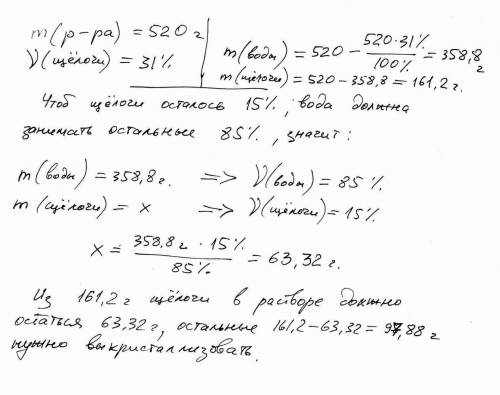 m(р-ра) = 520 г
ν(щёлочи) = 31%
m(воды) = 520 − 520·31% / 100% = 358,8 г
m(щёлочи) = 520 − 358,8 = 161,2 г.
Чтоб щёлочи осталось 15%, вода должна
занимать остальные 85%, значит:
m(воды) = 358,8 г. => ν(воды) = 85%.
m(щёлочи) = x => ν(щёлочи) = 15%
x = 358,8 г · 15% / 85% = 63,32 г.
Из 161,2 г щёлочи в растворе должно
остаться 63,32 г, остальные 161,2 − 63,32 = 97,88 г
нужно выкристаллизовать.